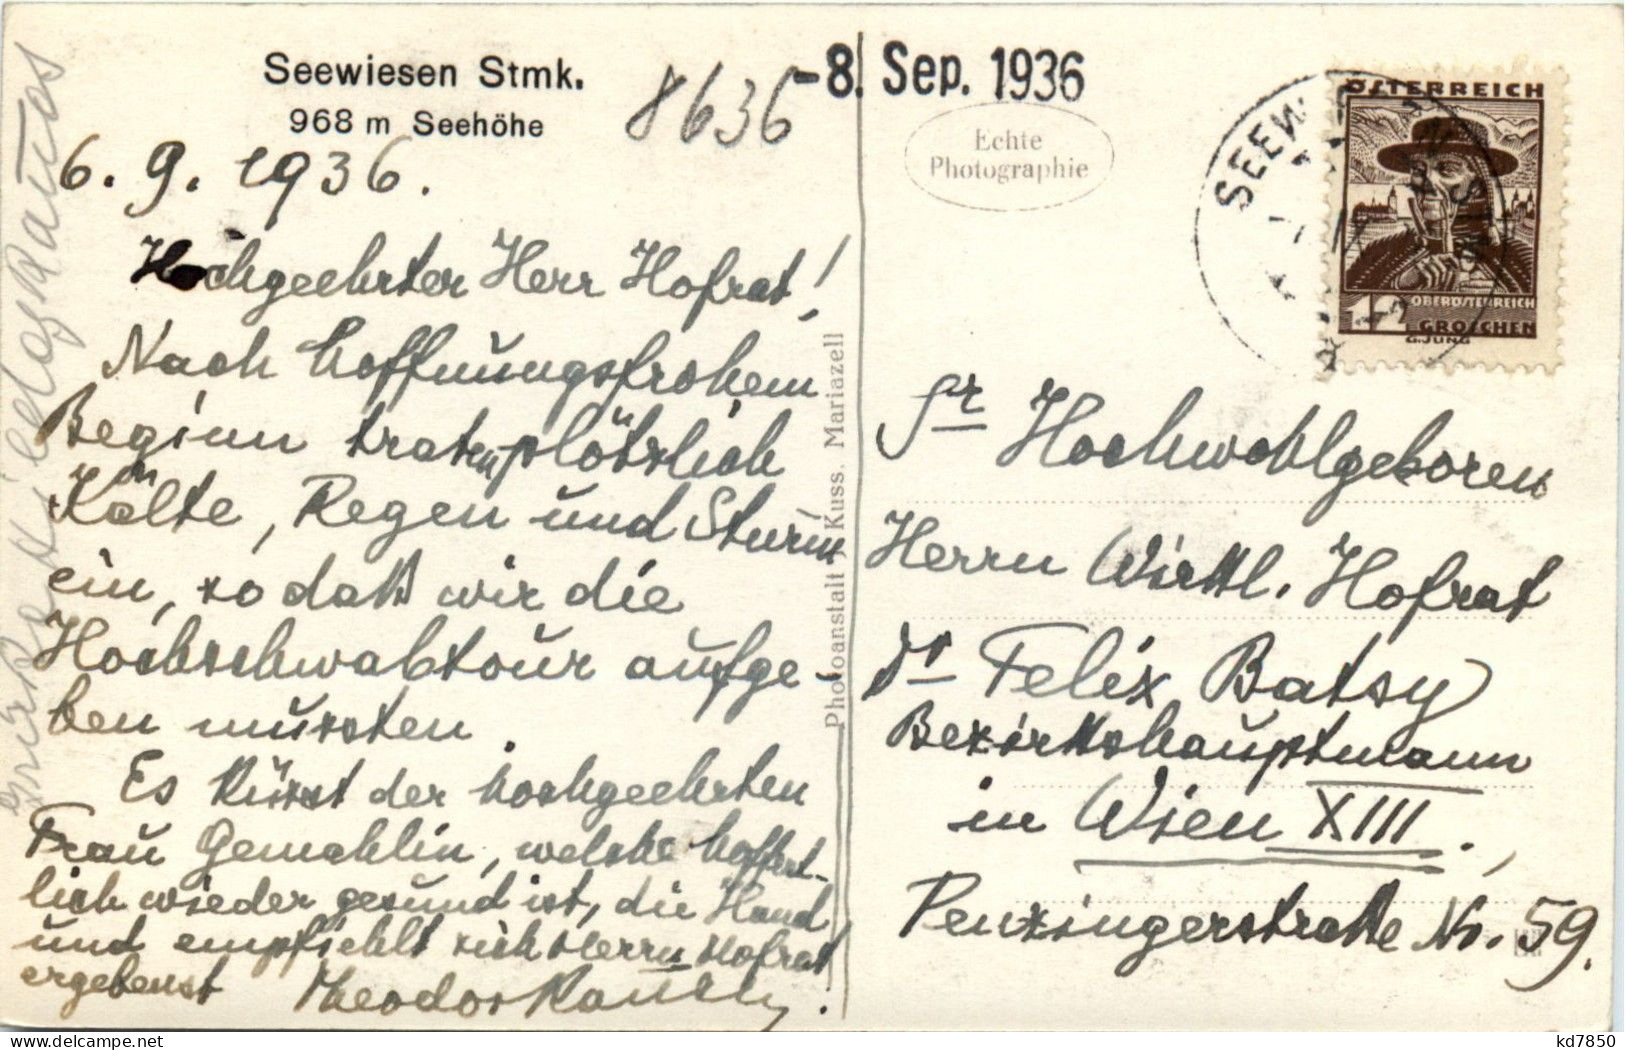 Seewiesen Stmk.
968 m Seehöhe
8636
-8. Sep. 1936
Echte
Photographie
ÖSTERREICH
OBERÖSTERREICH
12 GROSCHEN
G.JUNG
SEEW
6. 9. 1936.
Hochgeehrter Herr Hofrat!
Nach hoffnungsfrohem
Beginn traten plötzlich
Kälte, Regen und Sturm
ein, so daß wir die
Hochschwabtour aufge-
ben mussten.
Es küsst der hochgeehrten
Frau Gemahlin, welche hoffent-
lich wieder gesund ist, die Hand
und empfiehlt sich Herrn Hofrat
ergebenst Theodor
Photoanstalt J. Kuss. Mariazell
Sr Hochwohlgeboren
Herrn Wirkl. Hofrat
Dr Felix Batsy
Bezirkshauptmann
in Wien XIII.,
Penzingerstraße No. 59.
kd7850